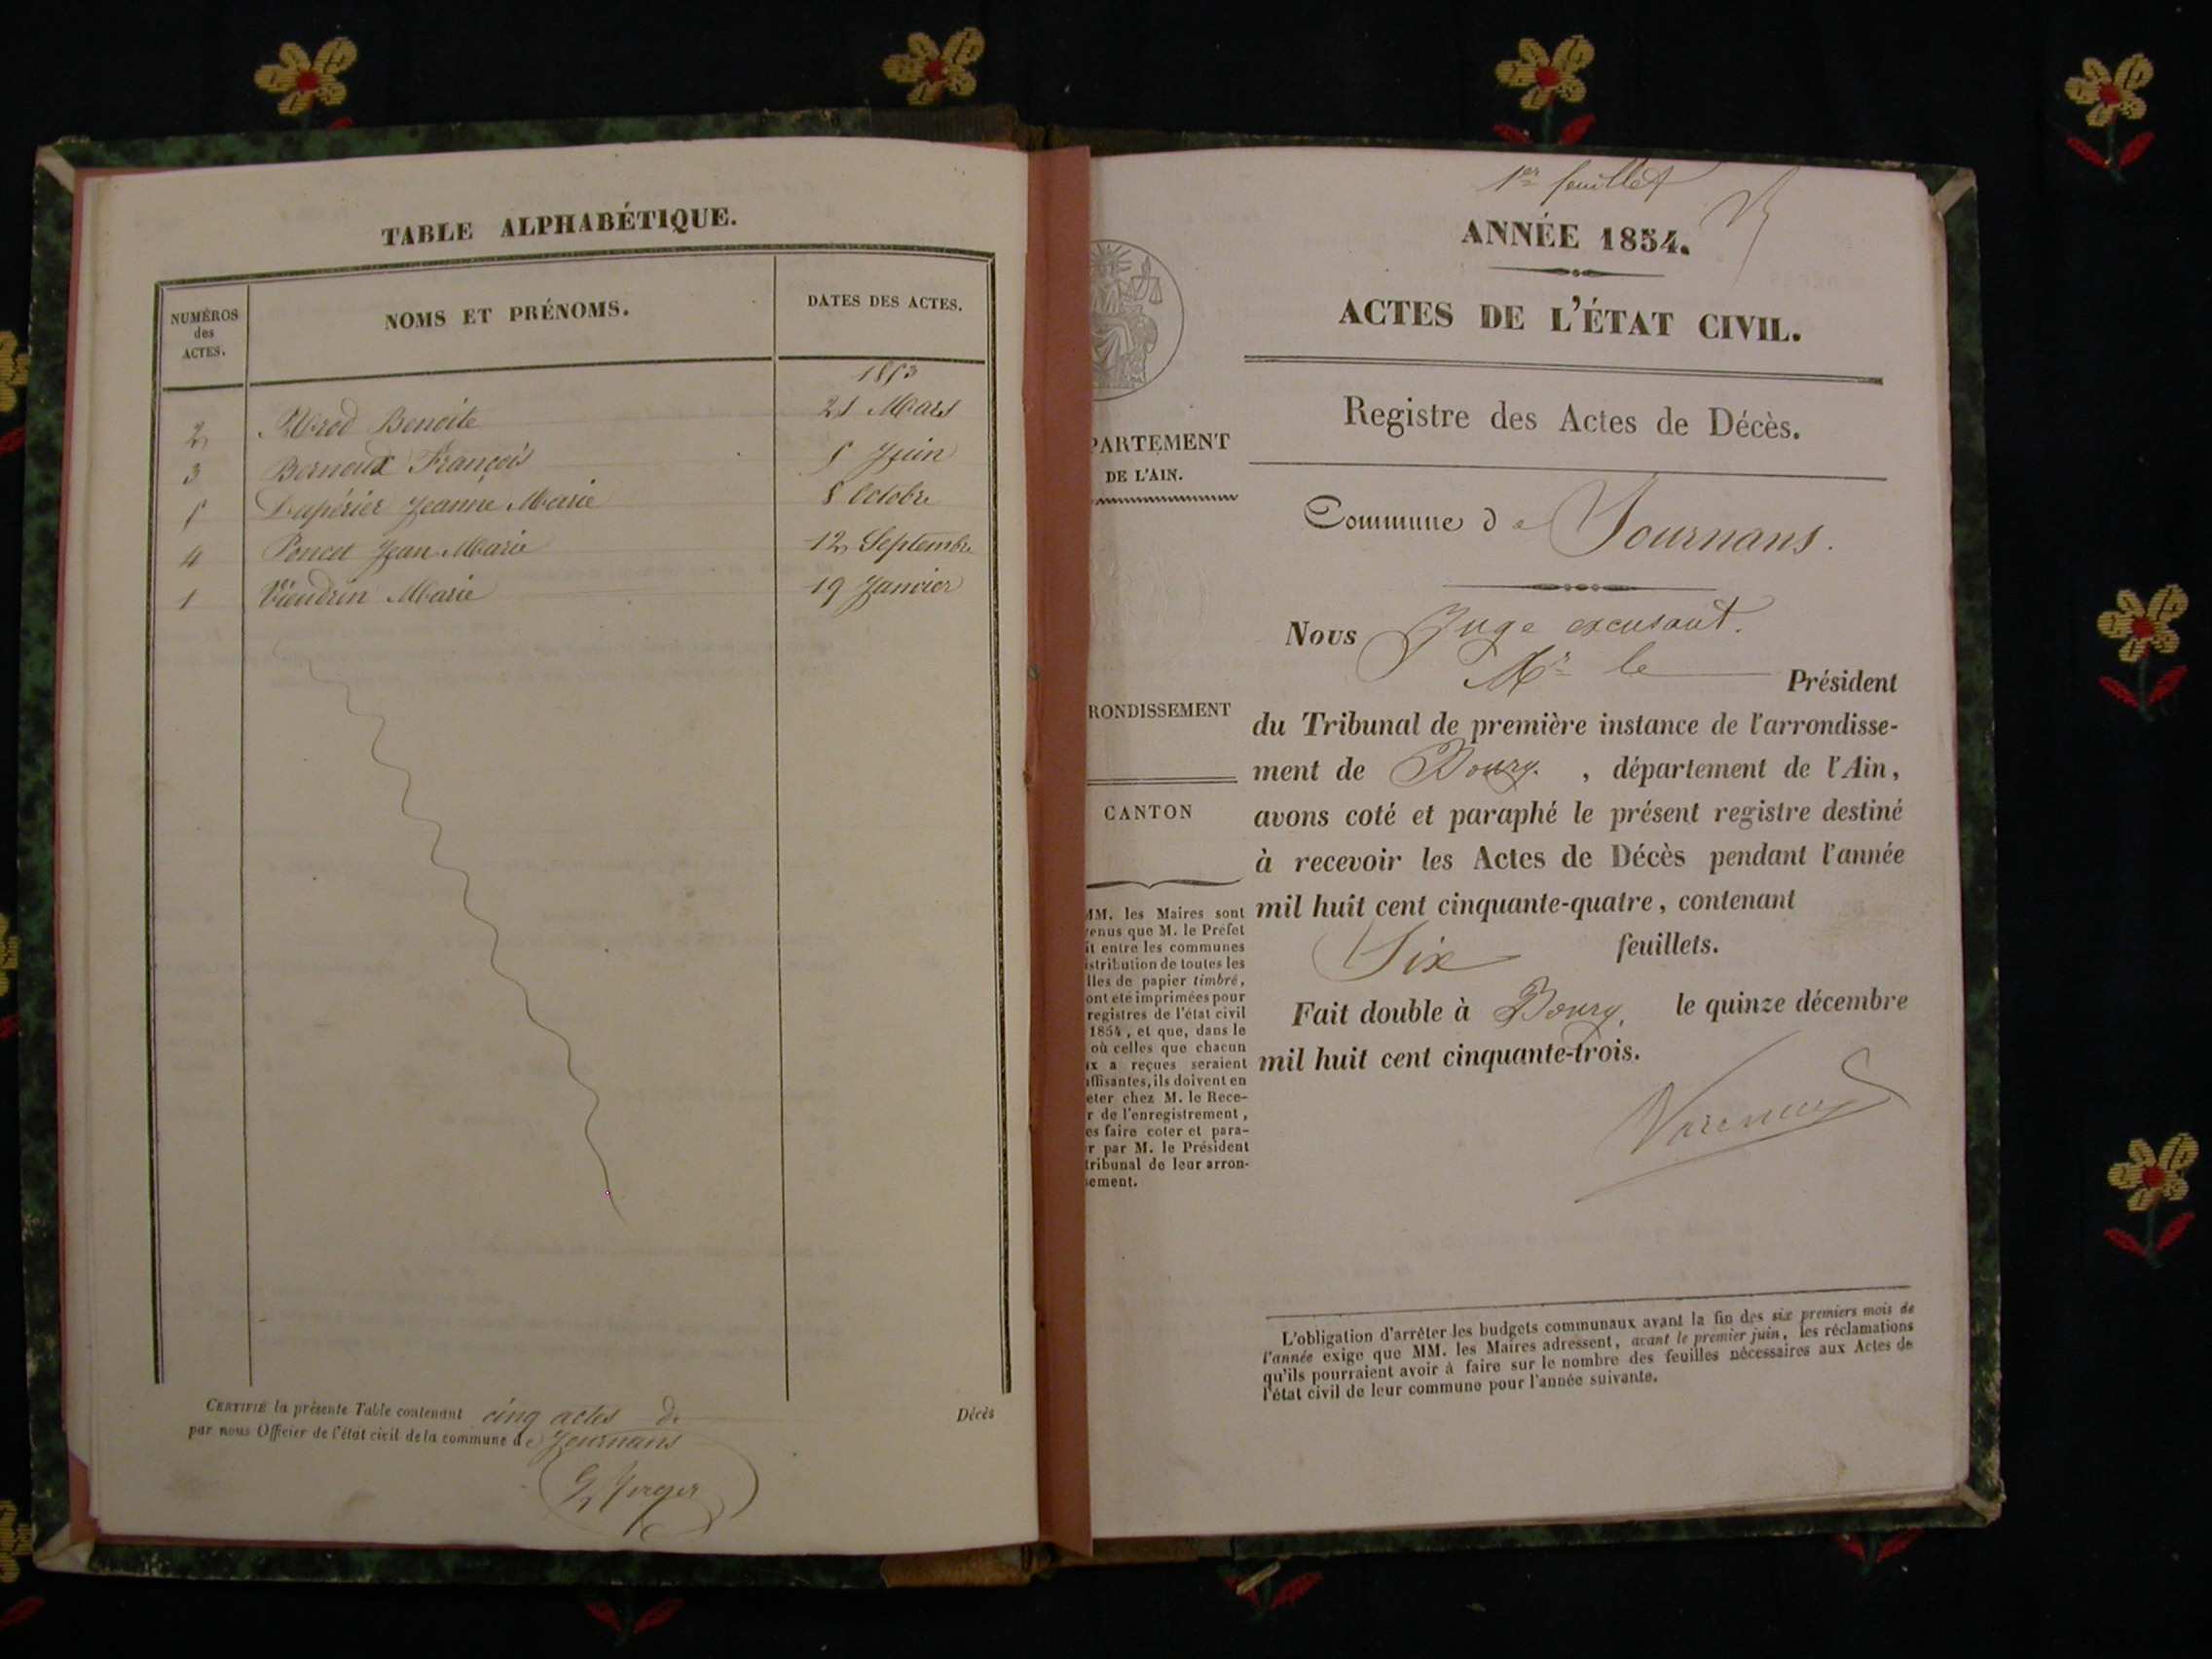 TABLE ALPHABÉTIQUE.
NUMÉROS
des
ACTES.
NOMS ET PRÉNOMS.
DATES DES ACTES.
1853
2 Benoite 21 Mars
3 Bernoux François 5 Juin
5 Lapérier Jeanne Marie 8 Octobre
4 Poncet Jean Marie 12 Septembre
1 Vieudrin Marie 19 Janvier
CERTIFIÉ la présente Table contenant cinq actes de Décès
par nous Officier de l'état civil de la commune de Journans
1er feuillet
ANNÉE 1854.
ACTES DE L'ÉTAT CIVIL.
Registre des Actes de Décès.
PARTEMENT
DE L'AIN.
Commune de Journans.
Nous Juge excusant.
Mr le Président
RONDISSEMENT
du Tribunal de première instance de l'arrondisse-
ment de Bourg. , département de l'Ain,
CANTON
avons coté et paraphé le présent registre destiné
à recevoir les Actes de Décès pendant l'année
mil huit cent cinquante-quatre, contenant
Six feuillets.
Fait double à Bourg, le quinze décembre
mil huit cent cinquante-trois.
MM. les Maires sont
venus que M. le Préfet
it entre les communes
istribution de toutes les
lles de papier timbré,
ont été imprimées pour
registres de l'état civil
1854, et que, dans le
où celles que chacun
ux a reçues seraient
uffisantes, ils doivent en
eter chez M. le Rece-
r de l'enregistrement,
es faire coter et para-
r par M. le Président
tribunal de leur arron-
sement.
L'obligation d'arrêter les budgets communaux avant la fin des six premiers mois de
l'année exige que MM. les Maires adressent, avant le premier juin, les réclamations
qu'ils pourraient avoir à faire sur le nombre des feuilles nécessaires aux Actes de
l'état civil de leur commune pour l'année suivante.